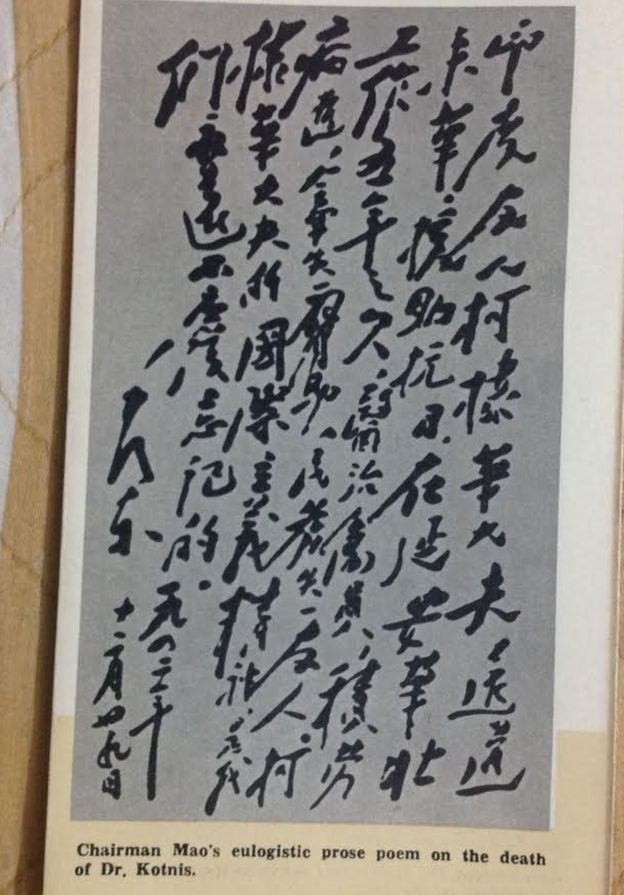 印度友人柯棣華大夫,遠道
来華,援助抗日,在延安華北
工作五年之久,醫治傷員,積勞
病逝,全軍失一臂助,民族失一友人。柯
棣華大夫的國際主義精神,是我
們永遠不應該忘記的。
毛澤東
一九四二年
十二月廿九日
Chairman Mao's eulogistic prose poem on the death
of Dr. Kotnis.